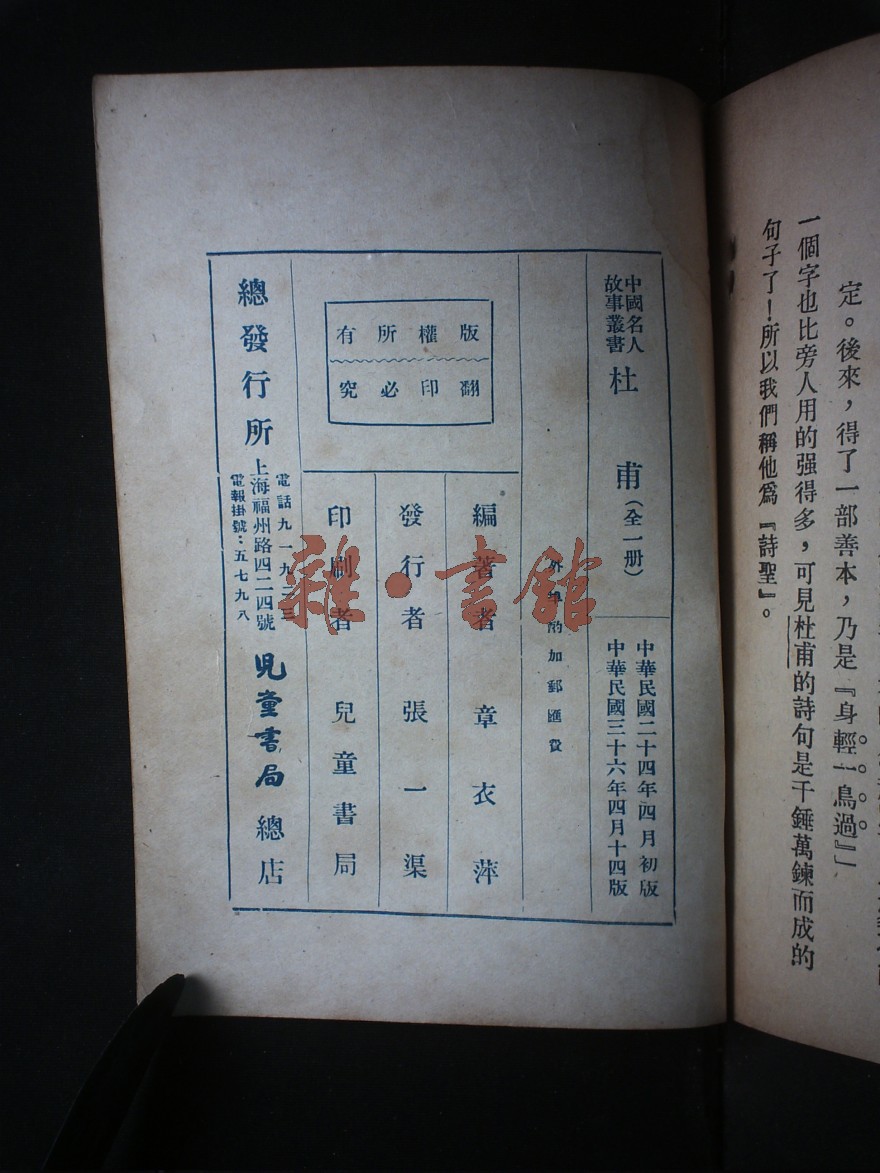 定。後來，得了一部善本，乃是『身輕一鳥過』」
一個字也比旁人用的强得多，可見杜甫的詩句是千錘萬鍊而成的
句子了！所以我們稱他爲『詩聖』。
中國名人
故事叢書
杜甫（全一册）
中華民國二十四年四月初版
中華民國三十六年四月十四版
外埠酌加郵匯費
編著者 章衣萍
發行者 張一渠
印刷者 兒童書局
版權所有
翻印必究
總發行所
電話九一九二三
上海福州路四二四號
電報掛號：五七九八
兒童書局 總店
雜·書館